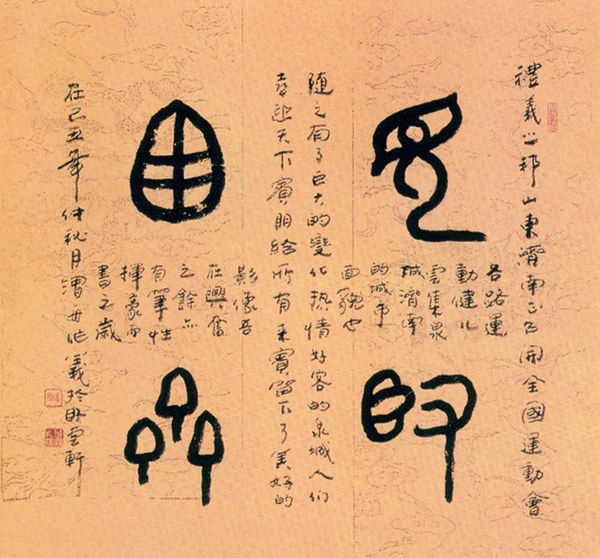 見賢
思齊
禮義之邦山東濟南正召開全國運動會
各路運
動健儿
雲集泉
城濟南
的城市
面貌也
隨之有了巨大的變化热情好客的泉城人们
喜迎天下賓朋給所有来賓留下了美好的
影像吾
在興奮
之餘亦
有筆性
揮豪而
書之歲
在己丑年仲秋月於卧雲軒